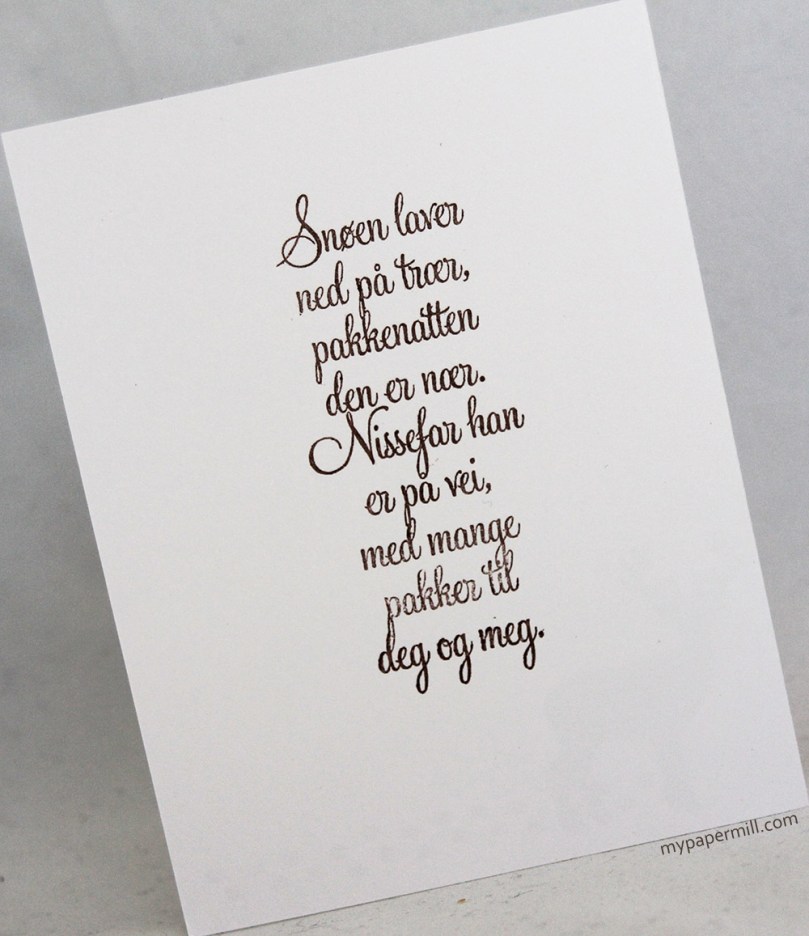 Snøen laver
ned på trær,
pakkenatten
den er nær.
Nissefar han
er på vei,
med mange
pakker til
deg og meg.
mypapermill.com